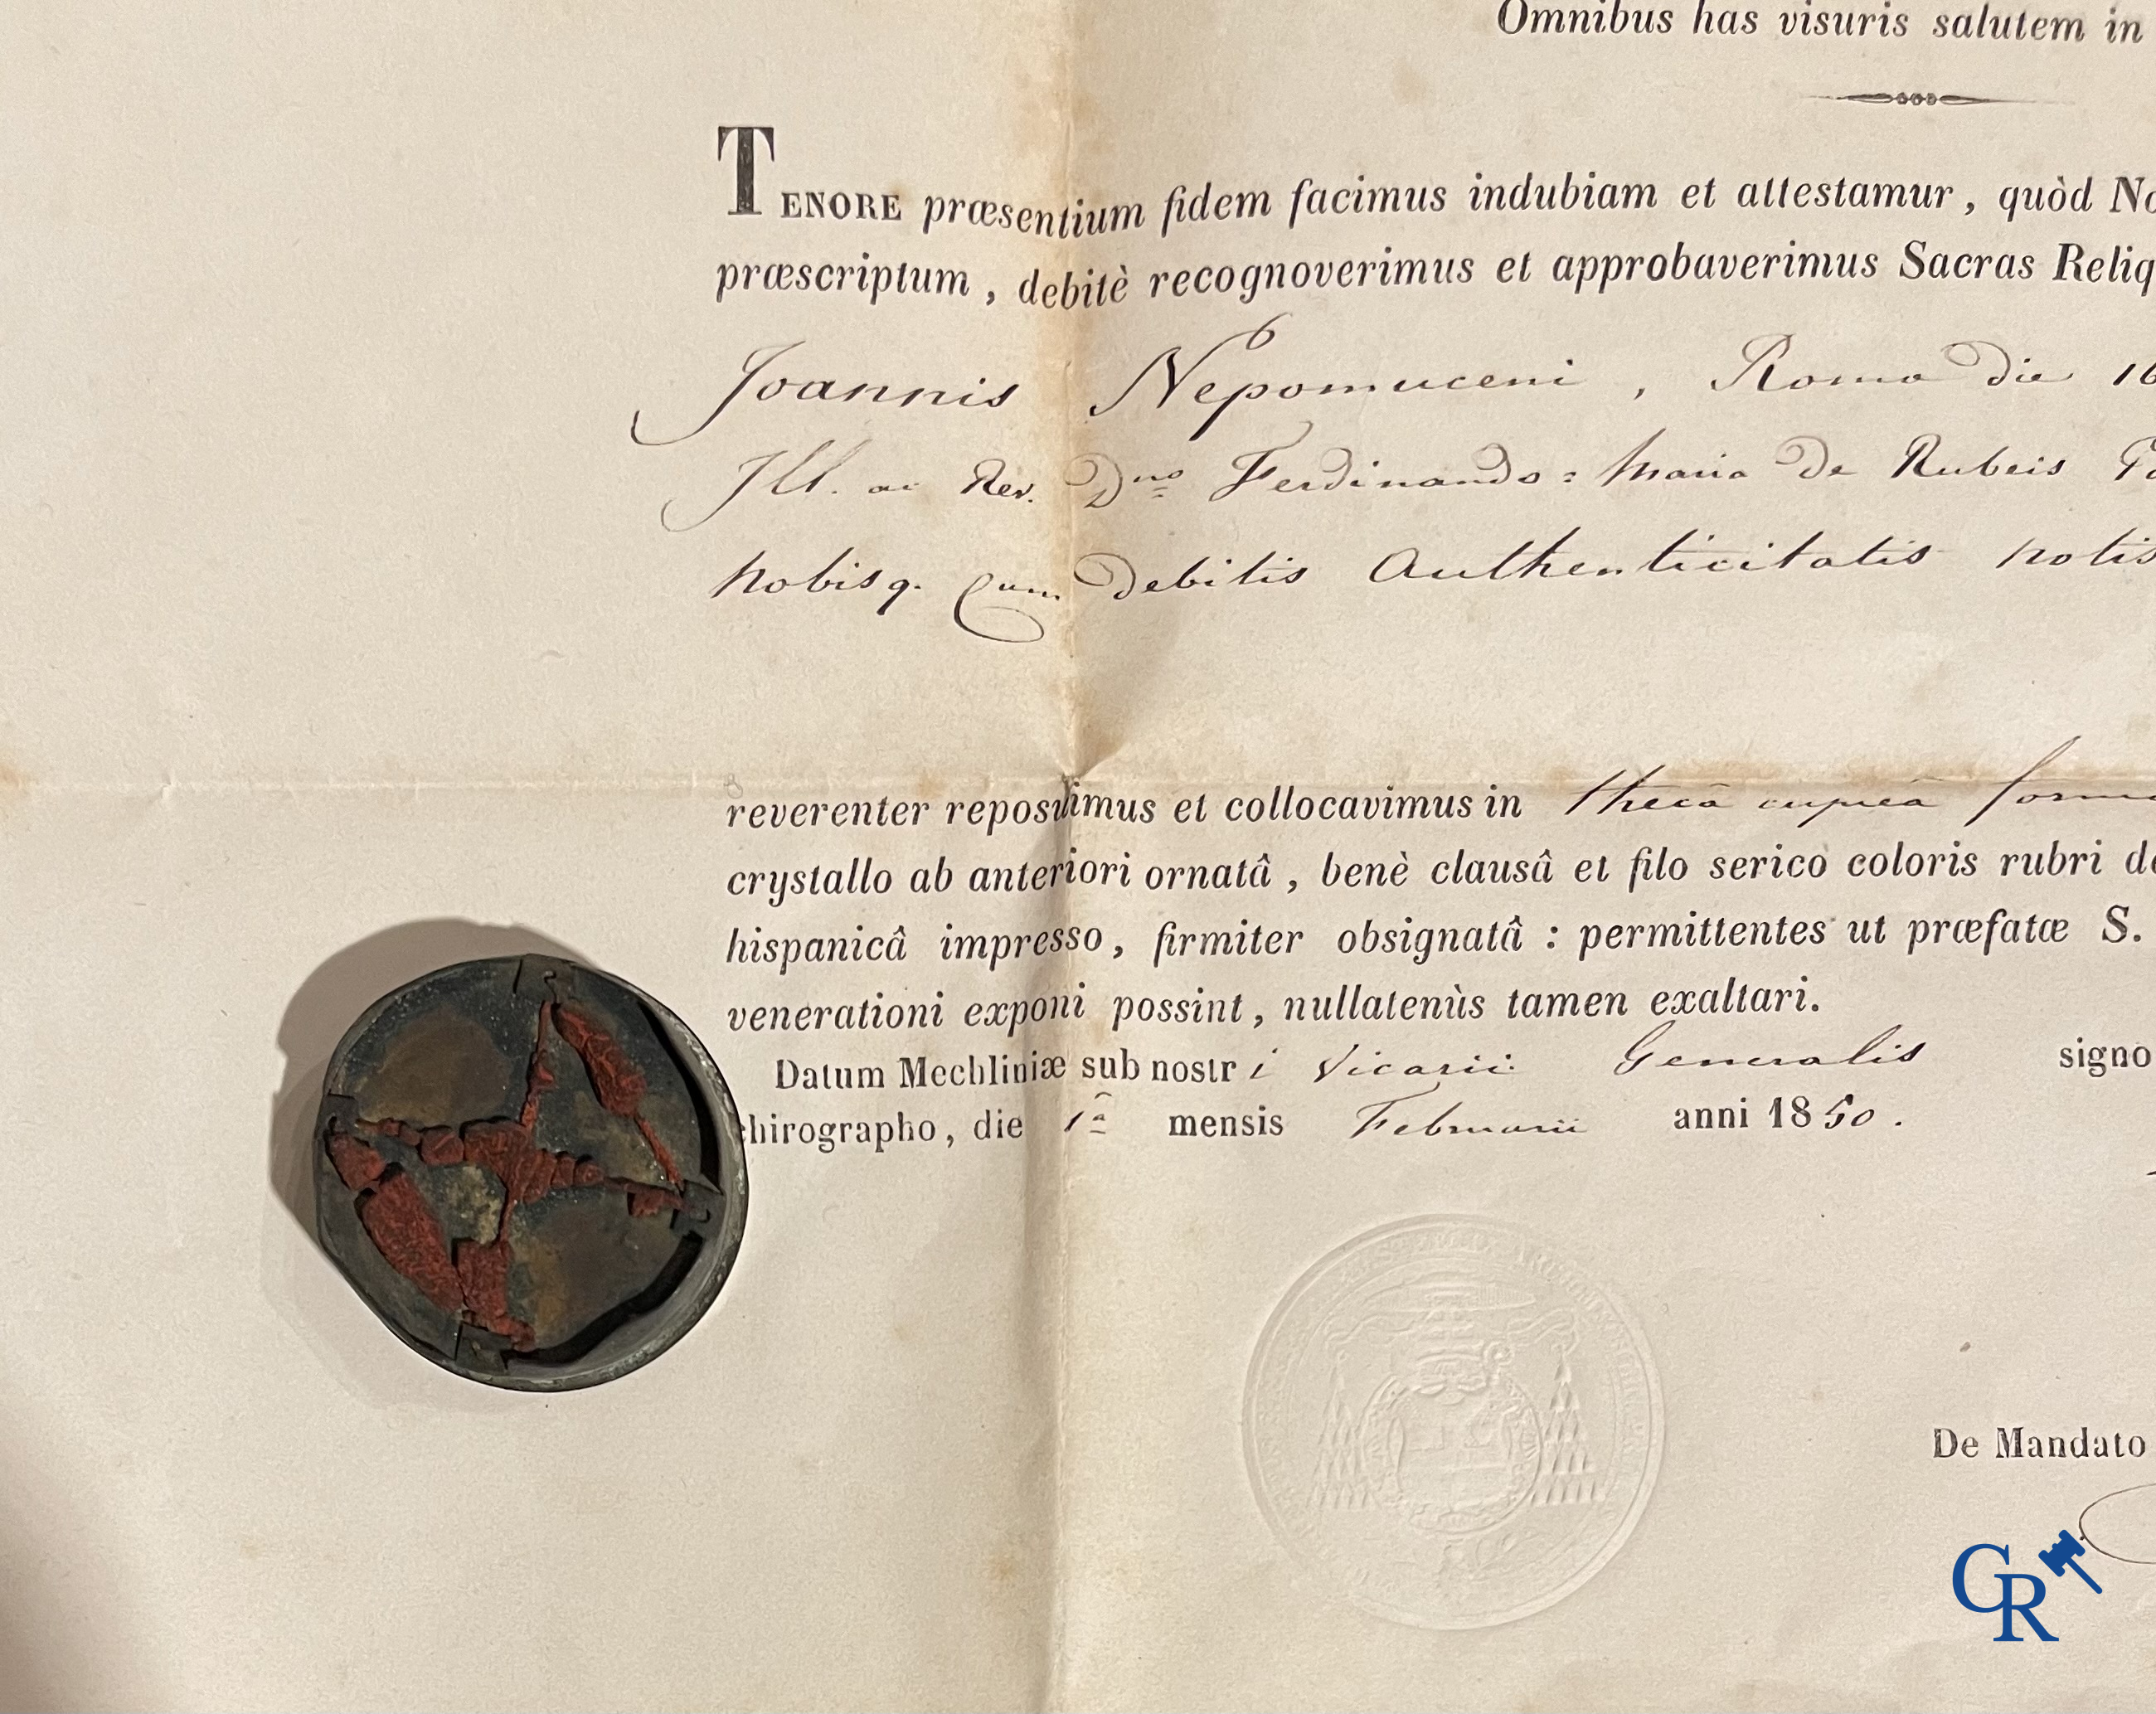 Omnibus has visuris salutem in
TENORE præsentium fidem facimus indubiam et attestamur, quòd
præscriptum, debitè recognoverimus et approbaverimus Sacras
Joannis Nepomuceni, Roma die 16
Ill. ac Rev. Dno Ferdinando= Maria De Rubeis
nobisq. Cum Debitis Authenticitatis notis
reverenter reposuimus et collocavimus in thecâ cupreâ
crystallo ab anteriori ornatâ, benè clausâ et filo serico coloris rubri
hispanicâ impresso, firmiter obsignatâ : permittentes ut præfatæ S.
venerationi exponi possint, nullatenùs tamen exaltari.
Datum Mechliniæ sub nostri Vicarii Generalis signo
chirographo, die 1â mensis Februarii anni 1850.
De Mandato
CR